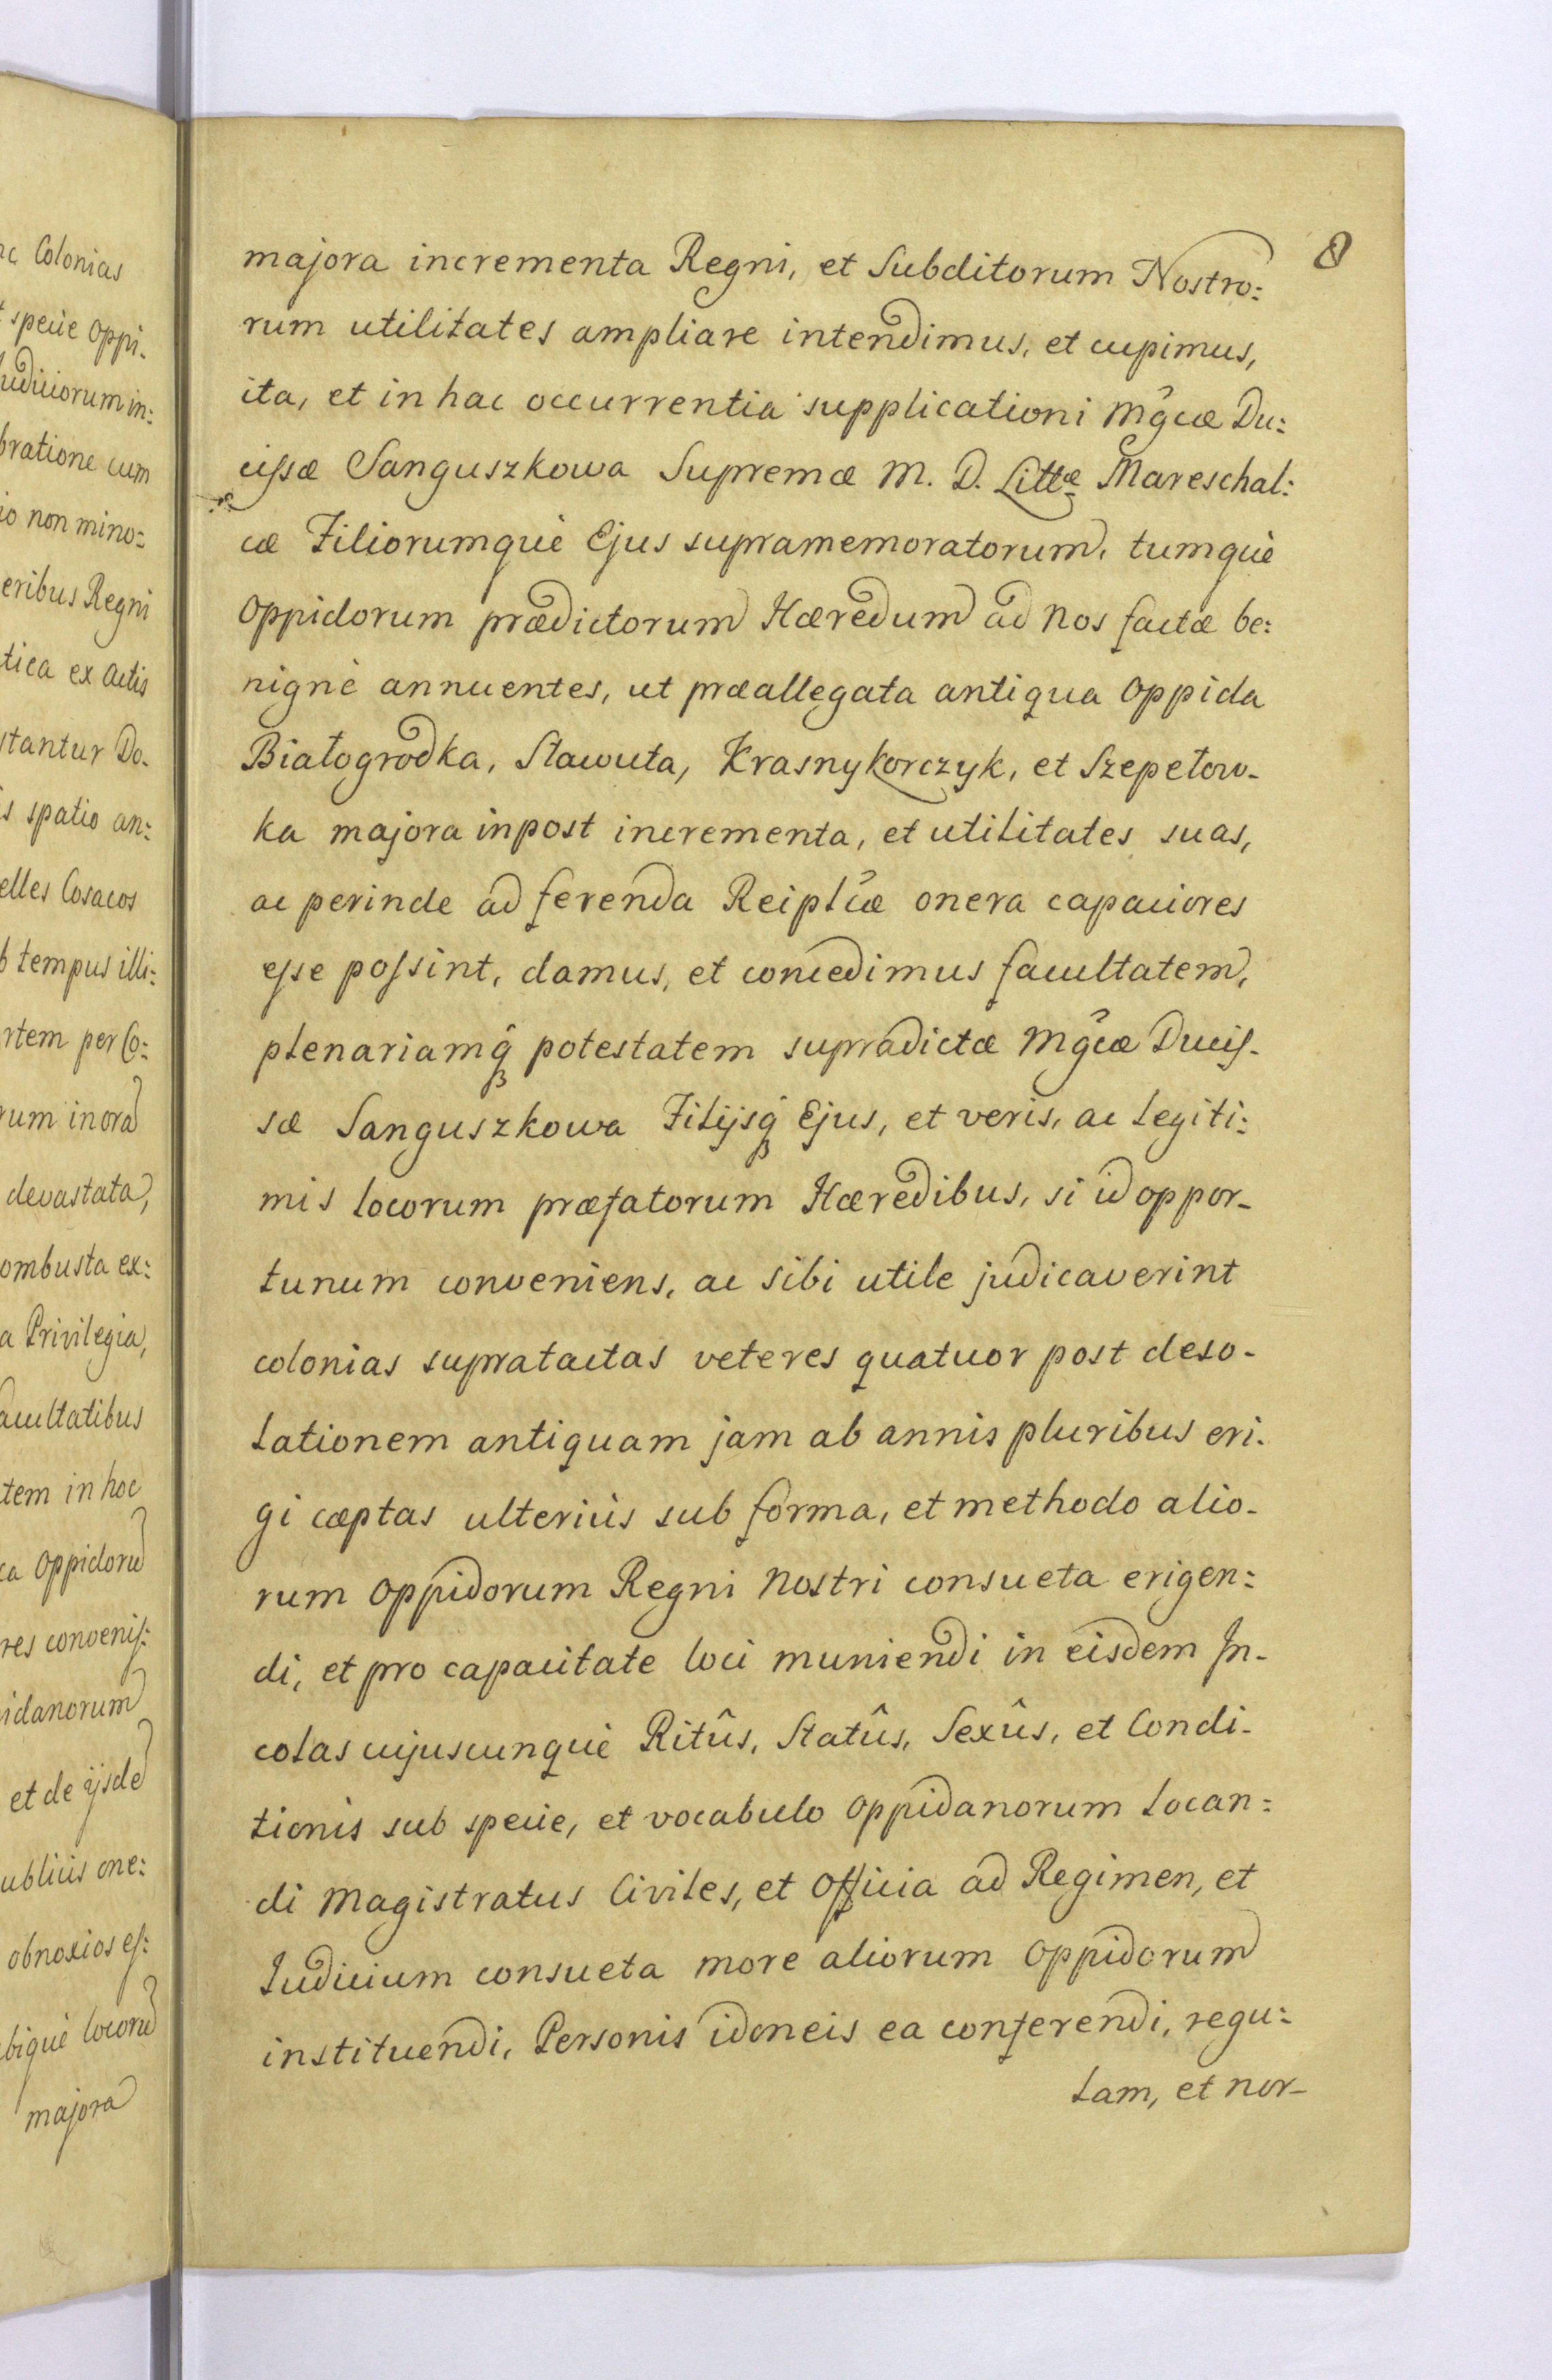 nc Colonias
t specie Oppi-
Judiciorum in:
bratione cum
io non mino:
eribus Regni
tica ex Actis
stantur Do-
is spatio an:
elles Cosacos
b tempus illi:
rtem per Co:
rum in ora
devastata,
ombusta ex:
a Privilegia,
acultatibus
tem in hoc
ca Oppidorũ
res convenis:
idanorum
et de ijsdẽ
ublicis one:
obnoxios es:
bique locorũ
majora
8
majora incrementa Regni, et Subditorum Nostro:
rum utilitates ampliare intendimus, et cupimus,
ita, et in hac occurrentia supplicationi Mg̃cæ Du:
cissæ Sanguszkowa Supremæ M. D. Littæ Mareschal:
cæ Filiorumquè Ejus supramemoratorum, tumquè
Oppidorum prædictorum Hæredum ad Nos factæ be:
nignè annuentes, ut præallegata antiqua Oppida
Białogrodka, Sławuta, Krasnykorczyk, et Szepetow-
ka majora inpost incrementa, et utilitates suas,
ac perinde ad ferenda Reipl̃cæ onera capaciores
esse possint, damus, et concedimus facultatem,
plenariamq̃ potestatem supradictæ Mg̃cæ Ducis-
sæ Sanguszkowa Filijsq̃ Ejus, et veris, ac legiti:
mis locorum præfatorum Hæredibus, si id oppor-
tunum conveniens, ac sibi utile judicaverint
colonias supratactas veteres quatuor post deso-
lationem antiquam jam ab annis pluribus eri-
gi cæptas ulteriùs sub forma, et methodo alio-
rum Oppidorum Regni Nostri consueta erigen:
di, et pro capacitate loci muniendi in eisdem In-
colas cujuscunquè Ritûs, Statûs, Sexûs, et Condi-
tionis sub specie, et vocabulo Oppidanorum locan:
di Magistratus Civiles, et Officia ad Regimen, et
Judicium consueta more aliorum Oppidorum
instituendi, Personis idoneis ea conferendi, regu:
lam, et nor-